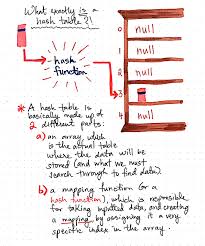 What exactly is a
hash table?!
hash
function
0
null
1
null
2
null
3
4
null
* A hash table is
basically made up of
2 different parts:
a) an array, which
is the actual table
where the data will
be stored (and what we must
search through to find data).
b) a mapping function (or a
hash function), which is responsible
for taking inputted data, and creating
a mapping by assigning it a very
specific index in the array.